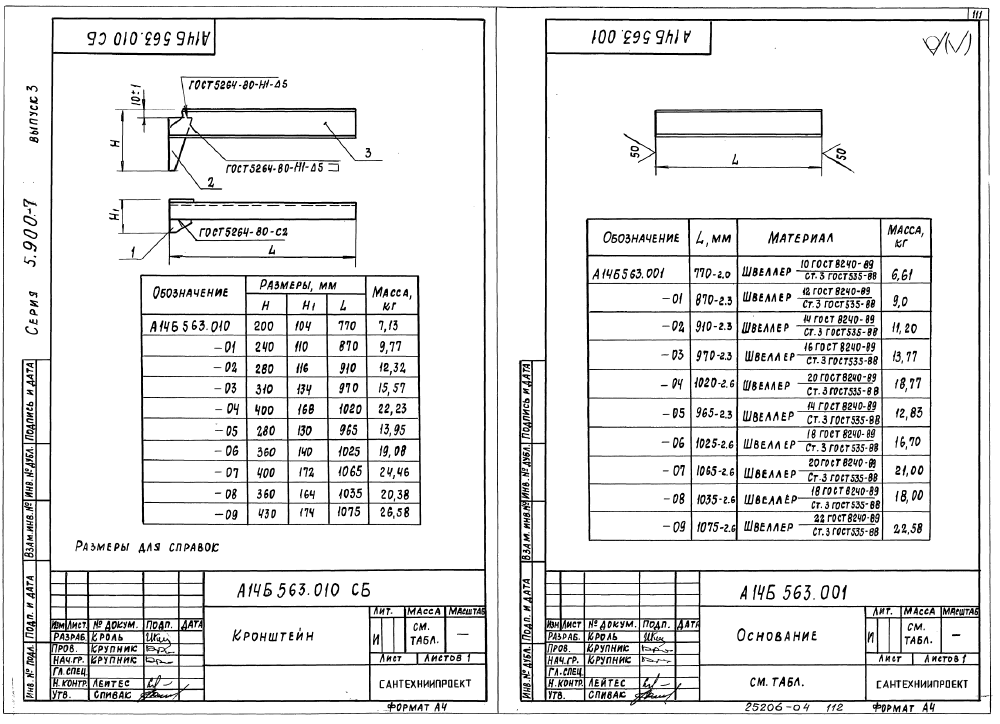 111
А14Б 563.010 СБ
ГОСТ 5264-80-Н1-Δ5
10±1
Н
3
ГОСТ 5264-80-Н1-Δ5
2
Н1
ГОСТ 5264-80-С2
1
L
Обозначение Размеры, мм Масса, кг
Н Н1 L
А14Б 563.010 200 104 770 7,13
-01 240 110 870 9,77
-02 280 116 910 12,32
-03 310 134 970 15,57
-04 400 168 1020 22,23
-05 280 130 965 13,95
-06 360 140 1025 19,08
-07 400 172 1065 24,46
-08 360 164 1035 20,38
-09 430 174 1075 26,58
Размеры для справок
Серия 5.900-7 выпуск 3
Взам.инв.№ Инв.№ дубл. Подпись и дата
Инв.№ подл. Подп. и дата
А14Б 563.010 СБ
Изм Лист № докум. Подп. Дата
Разраб. Кроль
Пров. Крупник
Нач.гр. Крупник
Гл.спец.
Н.контр. Лейтес
Утв. Спивак
Кронштейн
Лит. Масса Масштаб
И см. табл. —
Лист Листов 1
САНТЕХНИИПРОЕКТ
Формат А4
А14Б 563.001
(√)
50
50
L
Обозначение L, мм Материал Масса, кг
А14Б 563.001 770-2.0 Швеллер 10 ГОСТ 8240-89 / Ст.3 ГОСТ 535-88 6,61
-01 870-2.3 Швеллер 12 ГОСТ 8240-89 / Ст.3 ГОСТ 535-88 9,0
-02 910-2.3 Швеллер 14 ГОСТ 8240-89 / Ст.3 ГОСТ 535-88 11,20
-03 970-2.3 Швеллер 16 ГОСТ 8240-89 / Ст.3 ГОСТ 535-88 13,77
-04 1020-2.6 Швеллер 20 ГОСТ 8240-89 / Ст.3 ГОСТ 535-88 18,77
-05 965-2.3 Швеллер 14 ГОСТ 8240-89 / Ст.3 ГОСТ 535-88 12,83
-06 1025-2.6 Швеллер 18 ГОСТ 8240-89 / Ст.3 ГОСТ 535-88 16,70
-07 1065-2.6 Швеллер 20 ГОСТ 8240-89 / Ст.3 ГОСТ 535-88 21,00
-08 1035-2.6 Швеллер 18 ГОСТ 8240-89 / Ст.3 ГОСТ 535-88 18,00
-09 1075-2.6 Швеллер 22 ГОСТ 8240-89 / Ст.3 ГОСТ 535-88 22,58
Взам.инв.№ Инв.№ дубл. Подпись и дата
Инв.№ дубл. Подп. и дата
А14Б 563.001
Изм Лист № докум. Подп. Дата
Разраб. Кроль
Пров. Крупник
Нач.гр. Крупник
Гл.спец.
Н.контр. Лейтес
Утв. Спивак
Основание
см. табл.
Лит. Масса Масштаб
И см. табл. —
Лист Листов 1
САНТЕХНИИПРОЕКТ
25206-04 112 Формат А4